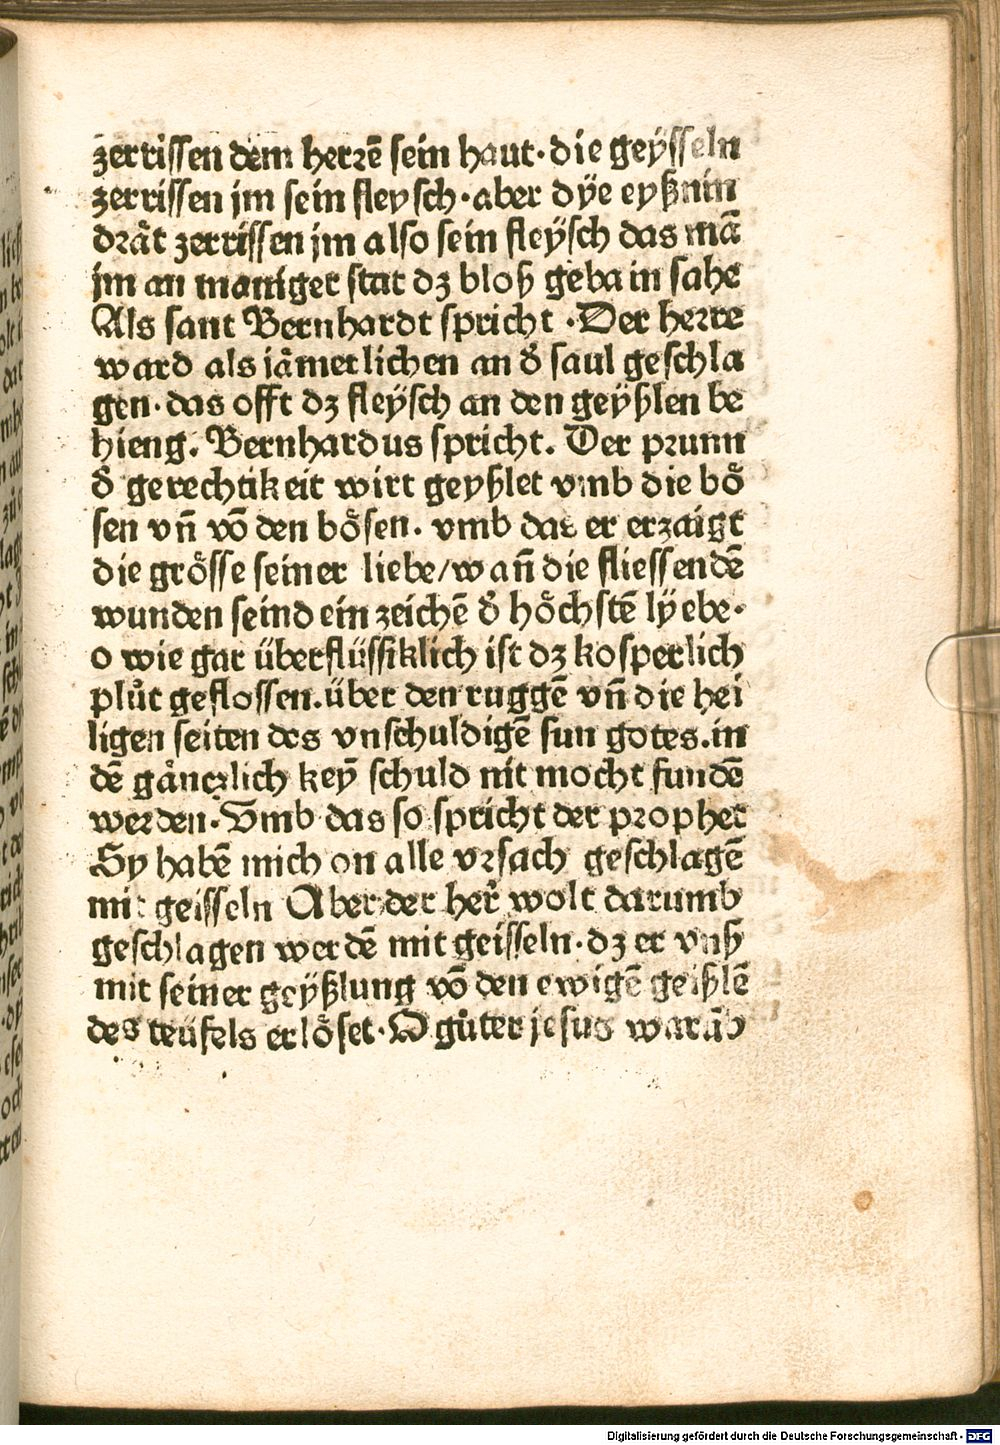 zerrissen dem herrē sein haut. die geÿsseln
zerrissen jm sein fleysch. aber dÿe eyßnin
drät zerrissen jm also sein fleÿsch das mā
jm an maniger stat dz bloß gebain sahe
Als sant Bernhardt spricht. Der herre
ward als jämerlichen an d̕ saul geschla
gen. das offt dz fleÿsch an den geÿßlen be
hieng. Bernhardus spricht. Der prunn
d̕ gerechtikeit wirt geyßlet vmb die bö
sen vn̄ vō den bösen. vmb das er erzaigt
die grösse seiner liebe/wan̄ die fliessendē
wunden seind ein zeichē d̕ höchstē lÿebe.
o wie gar überflüssiklich ist dz kosperlich
plůt geflossen. über den ruggē vn̄ die hei
ligen seiten des vnschuldigē sun gotes. in
dē gänczlich keÿ schuld nit mocht fundē
werden. Vmb das so spricht der prophet
Sy habē mich on alle vrsach geschlagē
mit geisseln Aber der her̄ wolt darumb
geschlagen werdē mit geisseln. dz er vnß
mit seiner geÿßlung vō den ewigē geißlē
des teüfels erlöset. O gůter jesus warūb
Digitalisierung gefördert durch die Deutsche Forschungsgemeinschaft - DFG